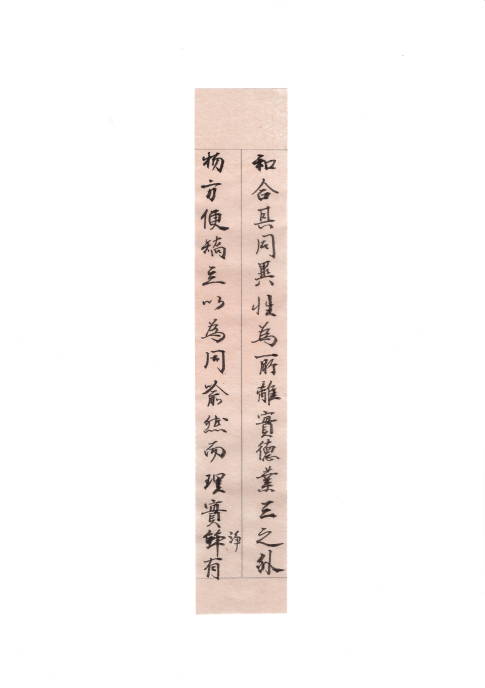 和合具同異性為所離實德業三之外
物方便矯立以為同喻然而理實有